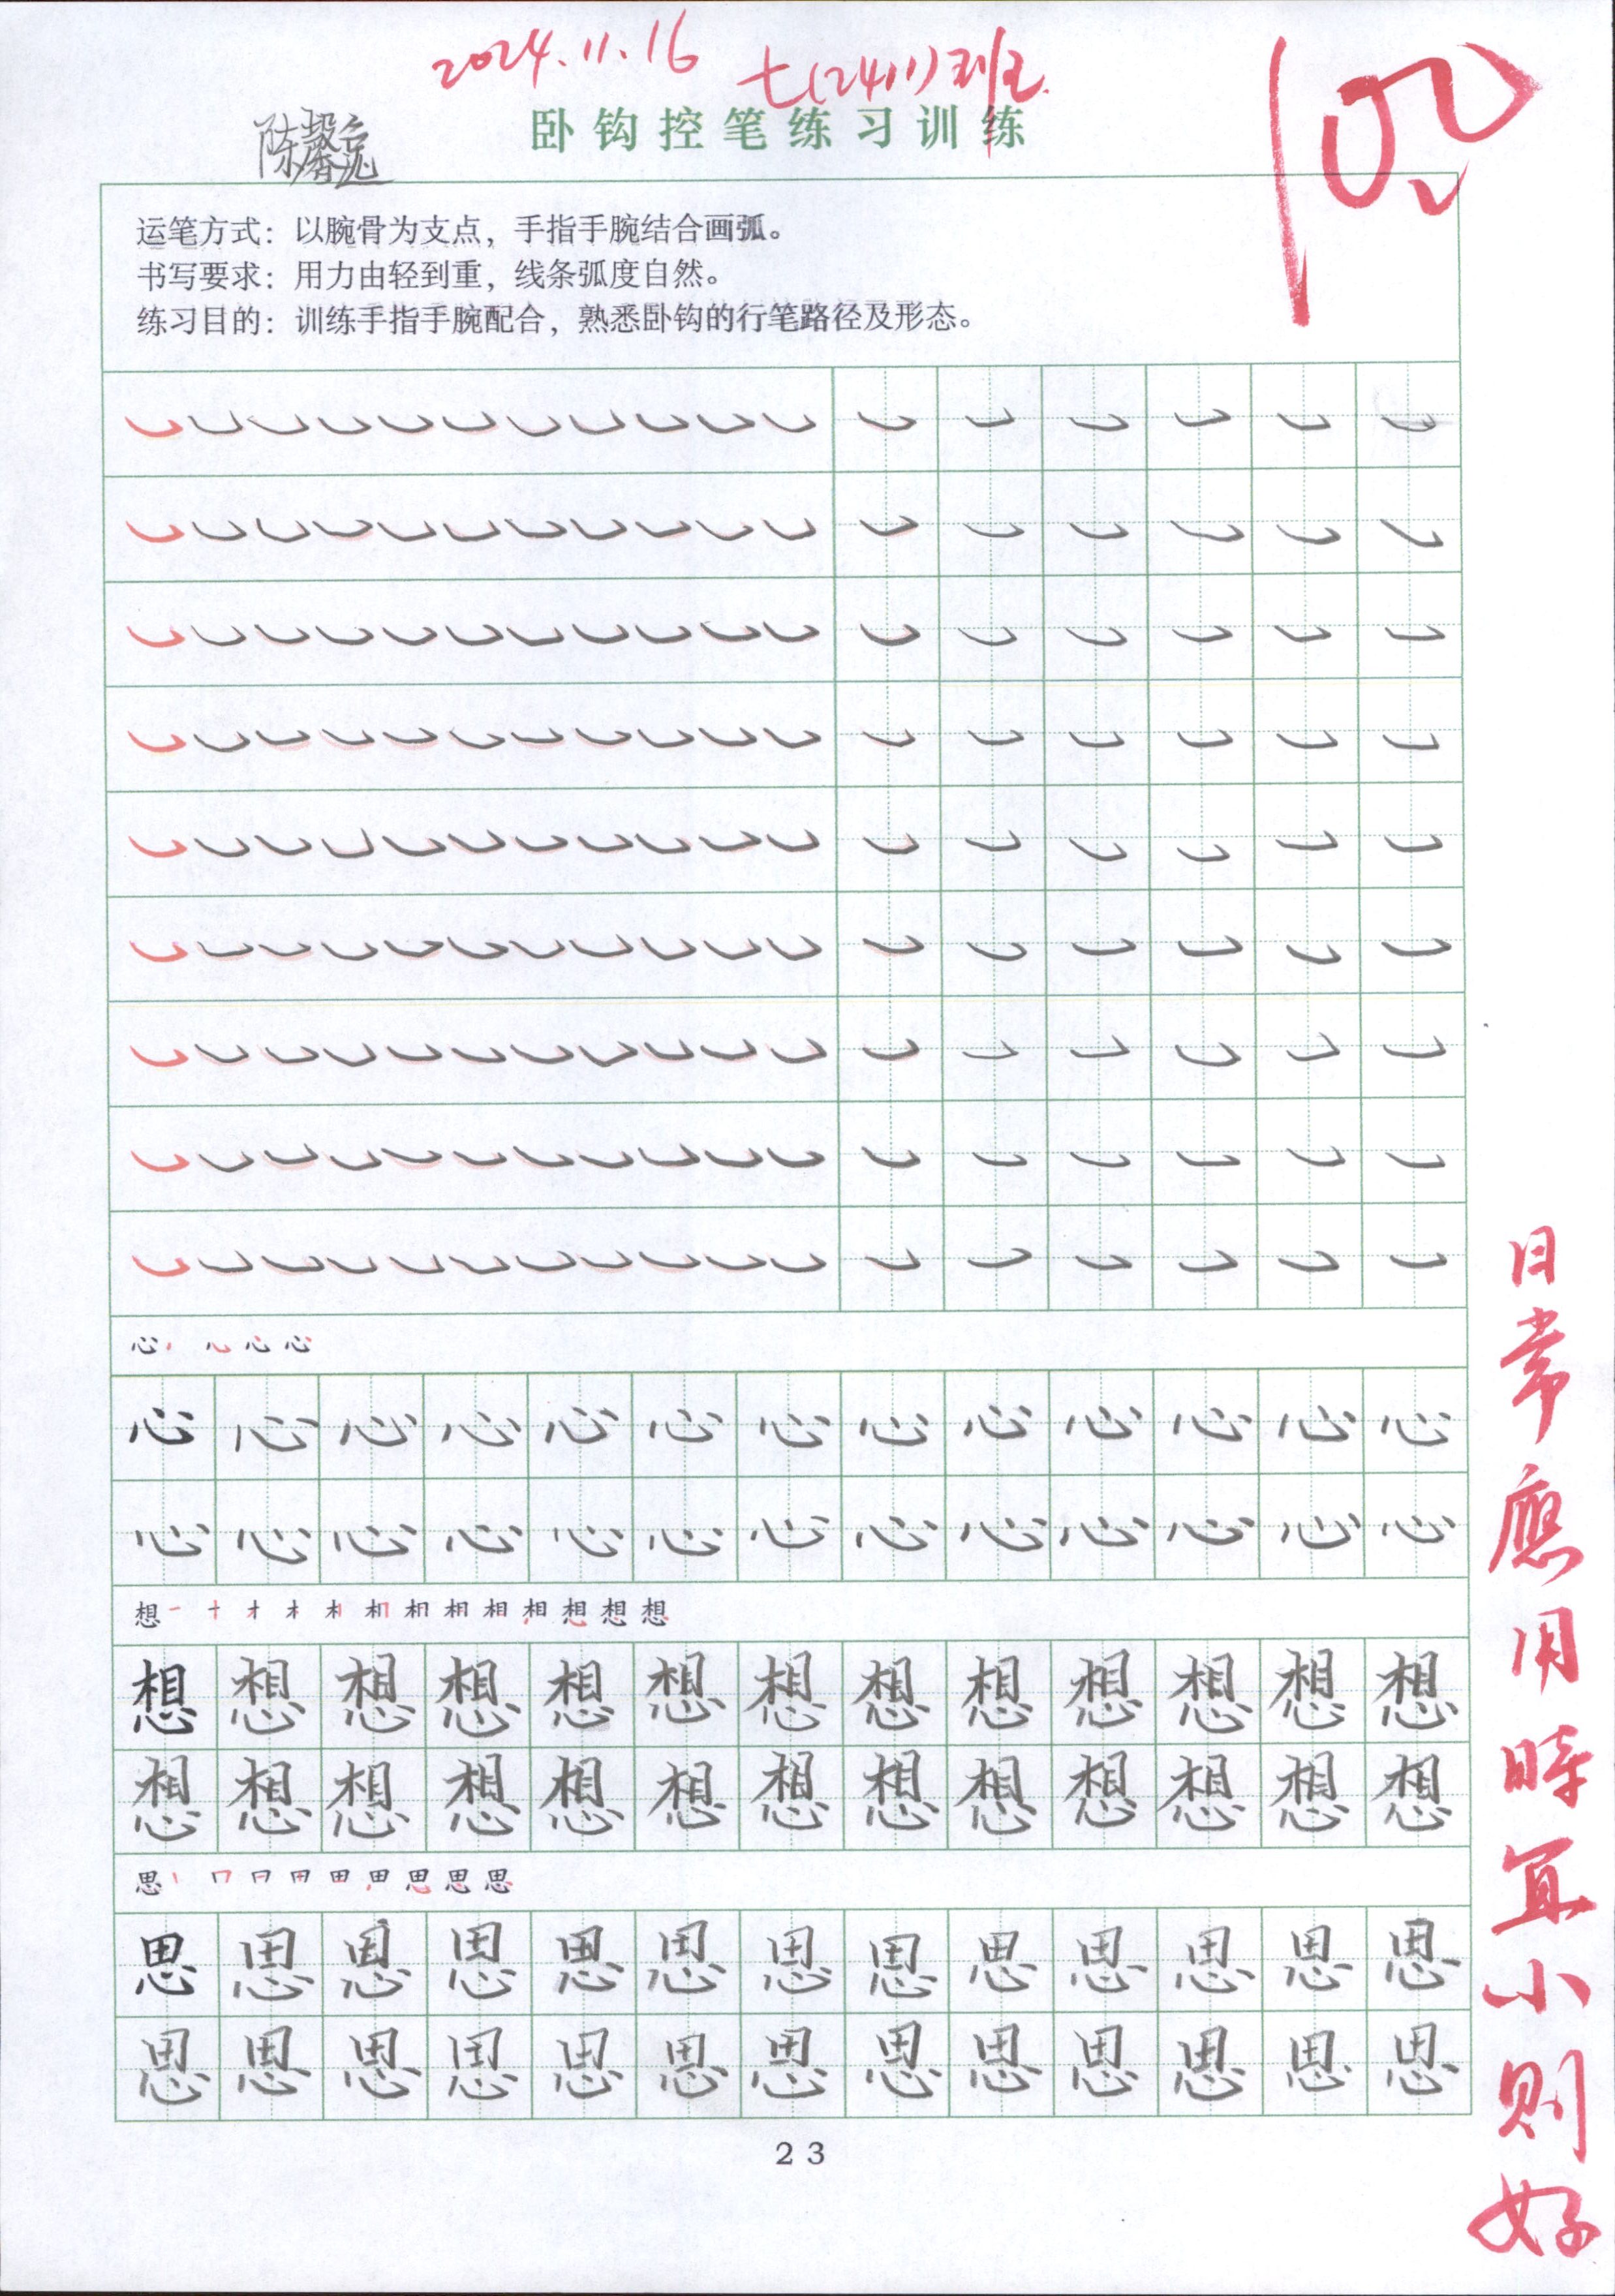 2024.11.16 七(2411)班.
100
陈馨逸
卧钩控笔练习训练
运笔方式：以腕骨为支点，手指手腕结合画弧。
书写要求：用力由轻到重，线条弧度自然。
练习目的：训练手指手腕配合，熟悉卧钩的行笔路径及形态。
心
心心心心心心心心心心心心心
心心心心心心心心心心心心心
想
想想想想想想想想想想想想想
想想想想想想想想想想想想想
思
思思思思思思思思思思思思思
思思思思思思思思思思思思思
23
日常應用時宜小則好